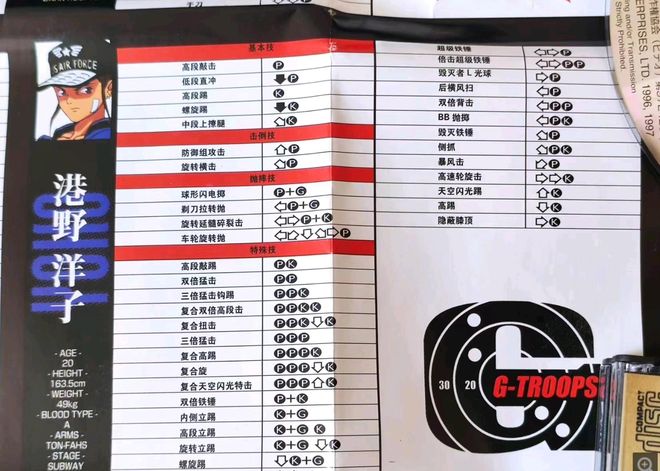 手刀
S.AIR FORCE
港野洋子
- AGE -
20
- HEIGHT -
163.5cm
- WEIGHT -
49kg
- BLOOD TYPE -
A
- ARMS -
TON-FAHS
- STAGE -
SUBWAY
基本技
高段敲击 P
低段直冲 ⬇P
高段踢 K
螺旋踢 ⬇K
中段上撩腿 K
击倒技
防御组攻击 ⇧P
旋转横击 P
抛摔技
球形闪电掷 P+G
剃刀拉转抛 ⇦P+G
旋转延髓碎裂击 ⇦⇨P+K
车轮旋转抛 P
特殊技
高段敲踢 PK
双倍猛击 PP
三倍猛击钩踢 PPK
复合双倍高段击 PPKK
复合扭击 PPK⇩K
三倍猛击 PPP
复合高踢 PPPK
复合旋 PPP⇩K
复合天空闪光特击 PPP⇧K
双倍铁锤 P+K
内侧立踢 K+G
高段立踢 K+G K
旋转立踢 K+G ⇩K
螺旋踢 K+G
超级铁锤 ⇦⇨P
倍击超级铁锤 ⇦⇨PP
毁灭者 L 光球 ⇨P
后横风扫 ⇦P
双倍背击 ⇦PP
BB 抛掷 ⇦PP
毁灭铁锤 P
侧抓 P
暴风击 P
高速轮旋击 ⇨K
天空闪光踢 ⇧K
高踢 ⇩K
隐蔽膝顶 ⇨K
30 20
G-TROOPS
作権協会(ビデオ
ERPRISES, LTD. 1996, 1997
ing and/or Transmission
Strictly Prohibited.
COMPACT
DISC